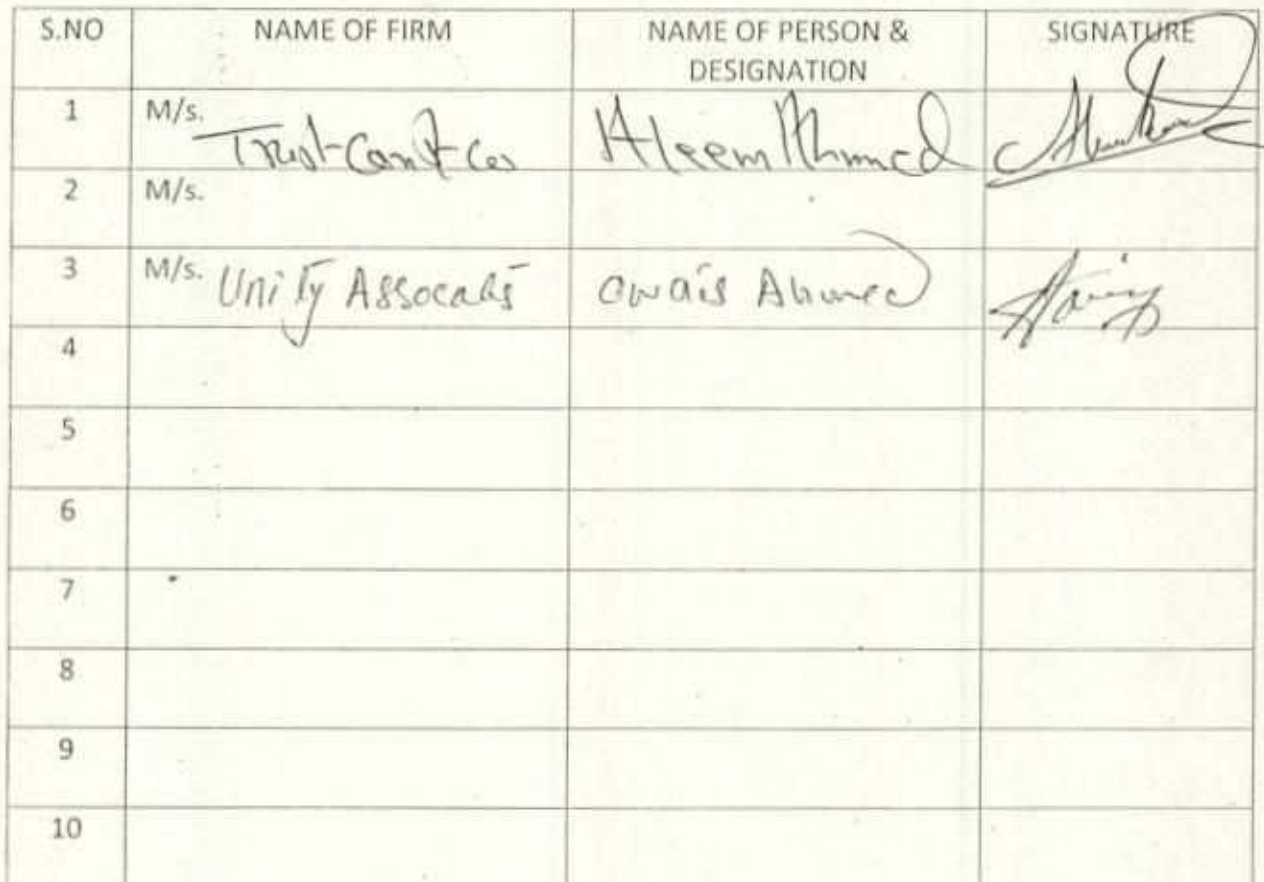 S.NO NAME OF FIRM NAME OF PERSON & SIGNATURE
DESIGNATION
1 M/s. Trust Con & Co Aleem Ahmed
2 M/s.
3 M/s. Unity Assocats Owais Ahmed
4
5
6
7
8
9
10